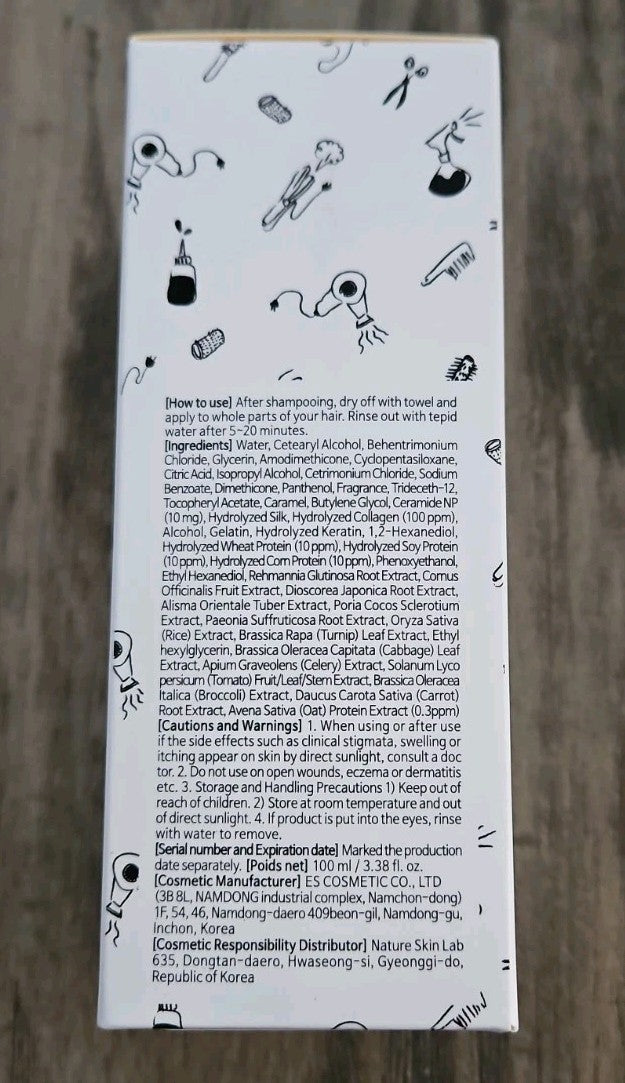 [How to use] After shampooing, dry off with towel and
apply to whole parts of your hair. Rinse out with tepid
water after 5~20 minutes.
[Ingredients] Water, Cetearyl Alcohol, Behentrimonium
Chloride, Glycerin, Amodimethicone, Cyclopentasiloxane,
Citric Acid, Isopropyl Alcohol, Cetrimonium Chloride, Sodium
Benzoate, Dimethicone, Panthenol, Fragrance, Trideceth-12,
Tocopheryl Acetate, Caramel, Butylene Glycol, Ceramide NP
(10 mg), Hydrolyzed Silk, Hydrolyzed Collagen (100 ppm),
Alcohol, Gelatin, Hydrolyzed Keratin, 1,2-Hexanediol,
Hydrolyzed Wheat Protein (10 ppm), Hydrolyzed Soy Protein
(10 ppm), Hydrolyzed Corn Protein (10 ppm), Phenoxyethanol,
Ethyl Hexanediol, Rehmannia Glutinosa Root Extract, Cornus
Officinalis Fruit Extract, Dioscorea Japonica Root Extract,
Alisma Orientale Tuber Extract, Poria Cocos Sclerotium
Extract, Paeonia Suffruticosa Root Extract, Oryza Sativa
(Rice) Extract, Brassica Rapa (Turnip) Leaf Extract, Ethyl
hexylglycerin, Brassica Oleracea Capitata (Cabbage) Leaf
Extract, Apium Graveolens (Celery) Extract, Solanum Lyco
persicum (Tomato) Fruit/Leaf/Stem Extract, Brassica Oleracea
Italica (Broccoli) Extract, Daucus Carota Sativa (Carrot)
Root Extract, Avena Sativa (Oat) Protein Extract (0.3ppm)
[Cautions and Warnings] 1. When using or after use
if the side effects such as clinical stigmata, swelling or
itching appear on skin by direct sunlight, consult a doc
tor. 2. Do not use on open wounds, eczema or dermatitis
etc. 3. Storage and Handling Precautions 1) Keep out of
reach of children. 2) Store at room temperature and out
of direct sunlight. 4. If product is put into the eyes, rinse
with water to remove.
[Serial number and Expiration date] Marked the production
date separately. [Poids net] 100 ml / 3.38 fl. oz.
[Cosmetic Manufacturer] ES COSMETIC CO., LTD
(3B 8L, NAMDONG industrial complex, Namchon-dong)
1F, 54, 46, Namdong-daero 409beon-gil, Namdong-gu,
Inchon, Korea
[Cosmetic Responsibility Distributor] Nature Skin Lab
635, Dongtan-daero, Hwaseong-si, Gyeonggi-do,
Republic of Korea